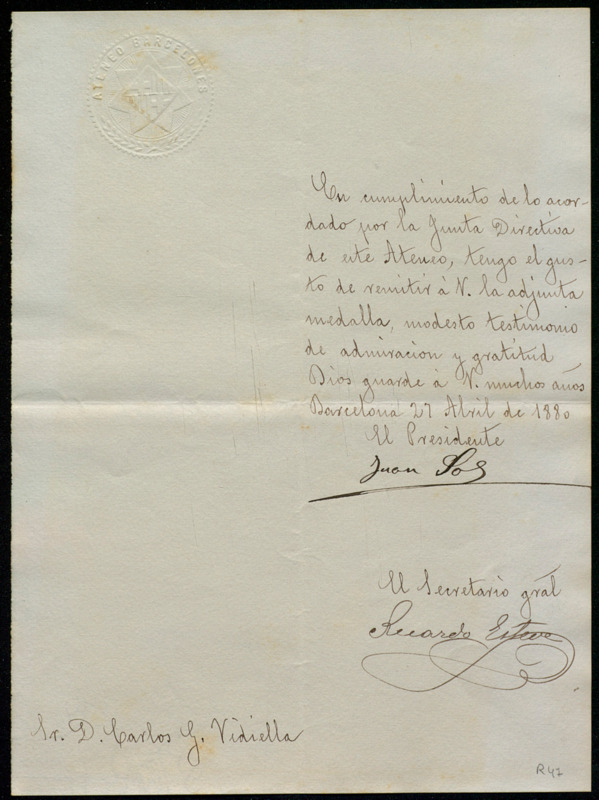 ATENEO BARCELONES
En cumplimiento de lo acor-
dado por la Junta Directiva
de este Ateneo, tengo el gus-
to de remitir à V. la adjunta
medalla, modesto testimonio
de admiracion y gratitud
Dios guarde à V. muchos años
Barcelona 27 Abril de 1880
El Presidente
Juan Sol
El Secretario gral
Ricardo Esteve
Sr. D. Carlos G. Vidiella
R42